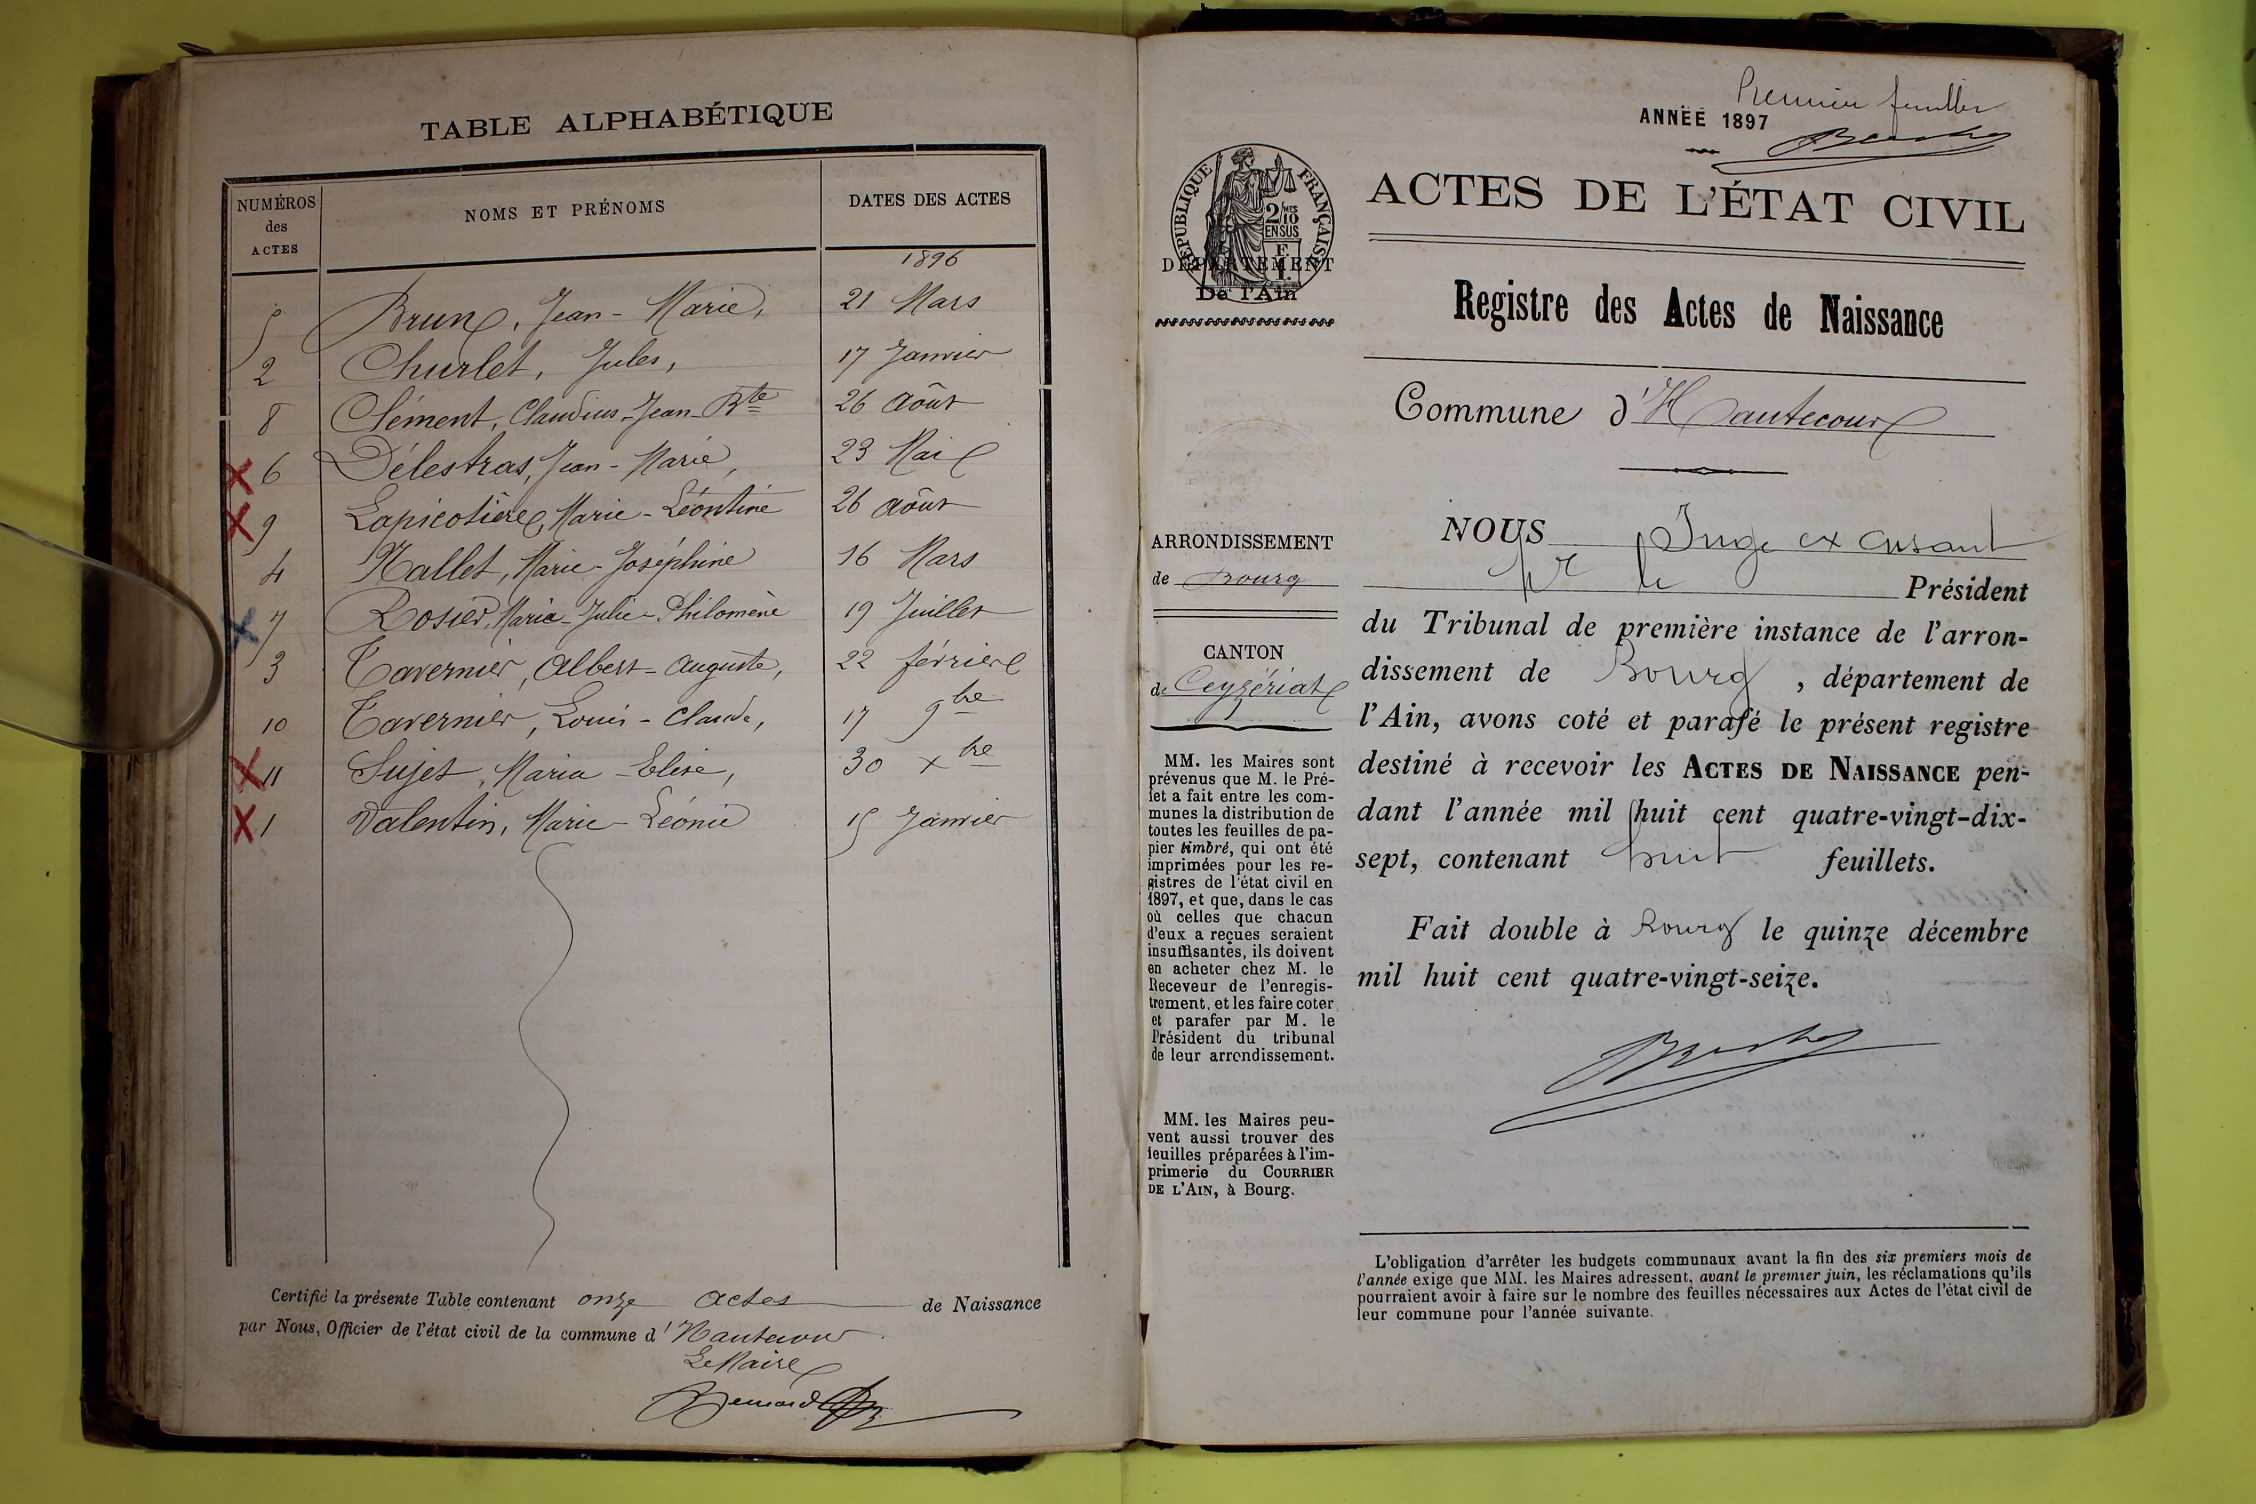 TABLE ALPHABÉTIQUE
NUMÉROS des ACTES NOMS ET PRÉNOMS DATES DES ACTES
1896
5 Brun, Jean-Marie, 21 Mars
2 Churlet, Jules, 17 Janvier
8 Clément, Claudius-Jean-Bte 26 Août
6 Délestras, Jean-Marie, 23 Mai
9 Lapicotière, Marie-Léontine 26 Août
4 Mallet, Marie-Joséphine 16 Mars
7 Rosier, Maria-Julie-Philomène 19 Juillet
3 Tavernier, Albert-Auguste, 22 février
10 Tavernier, Louis-Claude, 17 9bre
11 Sujet, Maria-Elise, 30 Xbre
1 Valentin, Marie-Léonie 15 Janvier
Certifié la présente Table contenant onze actes de Naissance
par Nous, Officier de l'état civil de la commune d'Hautecour
Le Maire
Bernard
Premier feuillet
ANNÉE 1897
RÉPUBLIQUE FRANÇAISE
2/10 MES
EN SUS
DÉPARTEMENT
De l'Ain
ACTES DE L'ÉTAT CIVIL
Registre des Actes de Naissance
Commune d'Hautecour
ARRONDISSEMENT
de Bourg
CANTON
de Ceyzériat
MM. les Maires sont
prévenus que M. le Pré-
fet a fait entre les com-
munes la distribution de
toutes les feuilles de pa-
pier timbré, qui ont été
imprimées pour les re-
gistres de l'état civil en
1897, et que, dans le cas
où celles que chacun
d'eux a reçues seraient
insuffisantes, ils doivent
en acheter chez M. le
Receveur de l'enregis-
trement, et les faire coter
et parafer par M. le
Président du tribunal
de leur arrondissement.
MM. les Maires peu-
vent aussi trouver des
feuilles préparées à l'im-
primerie du COURRIER
DE L'AIN, à Bourg.
NOUS Juge ex cusant
pr le Président
du Tribunal de première instance de l'arron-
dissement de Bourg, département de
l'Ain, avons coté et parafé le présent registre
destiné à recevoir les ACTES DE NAISSANCE pen-
dant l'année mil huit cent quatre-vingt-dix-
sept, contenant huit feuillets.
Fait double à Bourg le quinze décembre
mil huit cent quatre-vingt-seize.
L'obligation d'arrêter les budgets communaux avant la fin des six premiers mois de
l'année exige que MM. les Maires adressent, avant le premier juin, les réclamations qu'ils
pourraient avoir à faire sur le nombre des feuilles nécessaires aux Actes de l'état civil de
leur commune pour l'année suivante.